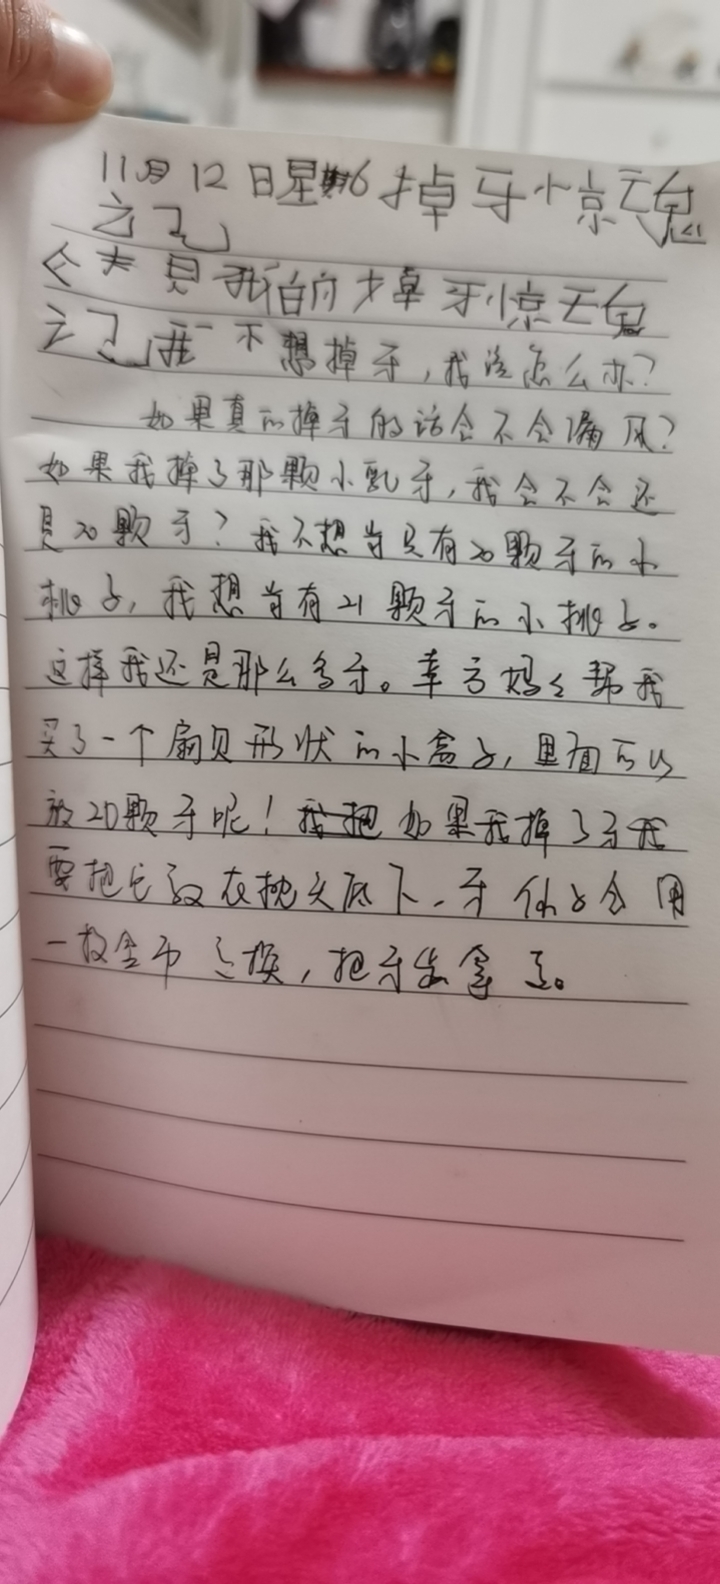 11月12日星期6掉牙惊魂
之记
今天是我的掉牙惊魂
之记，我不想掉牙，我该怎么办？
如果真的掉牙的话会不会漏风？
如果我掉了那颗小乳牙，我会不会还
是20颗牙？我不想当只有20颗牙的小
桃子，我想当有21颗牙的小桃子。
这样我还是那么多牙。幸亏妈妈帮我
买了一个扇贝形状的小盒子，里面可以
放20颗牙呢！我把如果我掉了牙我
要把它放在枕头底下，牙仙子会用
一枚金币交换，把牙齿拿走。